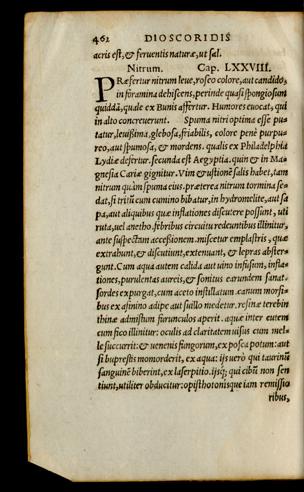 462 DIOSCORIDIS
acris est, & feruentis naturæ, ut sal.
Nitrum. Cap. LXXVIII.
PRæfertur nitrum leue, roseo colore, aut candido,
in foramina dehiscens, perinde quasi spongiosum
quiddã, quale ex Bunis affertur. Humores euocat, qui
in alto concreuerunt. Spuma nitri optima esse pu-
tatur, leuißima, glebosa, friabilis, colore penè purpu-
reo, aut spumosa, & mordens. qualis ex Philadelphia
Lydiæ defertur. secunda est Aegyptia. quin & in Ma-
gnesia Cariæ gignitur. Vim & ustionẽ salis habet, tam
nitrum quàm spuma eius. præterea nitrum tormina se-
dat, si tritũ cum cumino bibatur, in hydromelite, aut sa
pa, aut aliquibus quæ inflationes discutere possunt, uti
ruta, uel anetho. febribus circuitu redeuntibus illinitur,
ante suspectam acceßionem. miscetur emplastris, quæ
extrahunt, & discutiunt, extenuant, & lepras abster-
gunt. Cum aqua autem calida aut uino infusum, infla-
tiones, purulentas aureis, & sonitus earundem sanat.
sordes expurgat, cum aceto instillatum. canum morsi-
bus ex asinino adipe aut suillo medetur. resinæ terebin
thinæ admistum furunculos aperit. aquæ inter cutem
cum fico illinitur: oculis ad claritatem uisus cum mel-
le succurrit: & uenenis fungorum, ex posca potum: aut
si buprestis momorderit, ex aqua: ijs uerò qui taurinũ
sanguinẽ biberint, ex laserpitio. ijsq; qui cibũ non sen
tiunt, utiliter obducitur: opisthotonisque iam remissio
ribus,